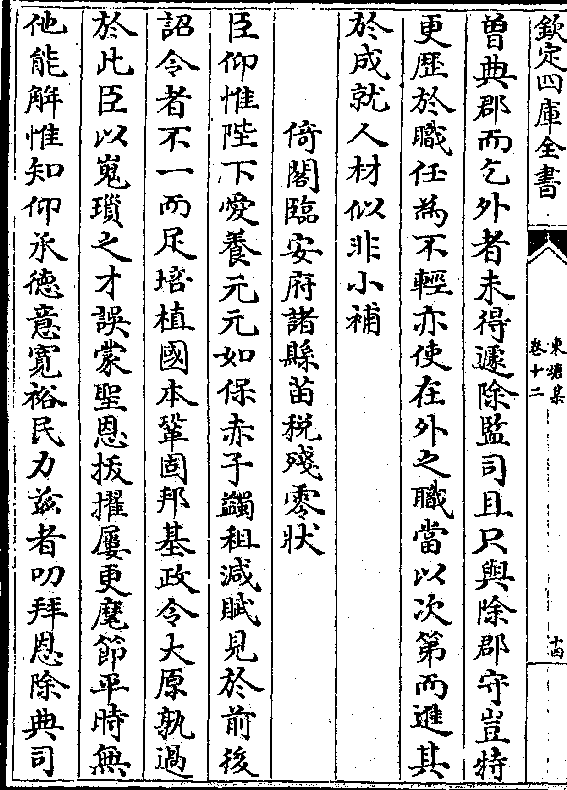 欽定四庫全書
東塘集
卷十二
十四
曾典郡而乞外者未得遽除監司且只與除郡守豈特
更歷於職任為不輕亦使在外之職當以次第而進其
於成就人材似非小補
倚閣臨安府諸縣苗稅殘零狀
臣仰惟陛下愛養元元如保赤子蠲租減賦見於前後
詔令者不一而足培植國本鞏固邦基政令大原孰過
於此臣以嵬瑣之才誤蒙聖恩拔擢屢更麾節平時無
他能解惟知仰承德意寛裕民力兹者叨拜恩除典司